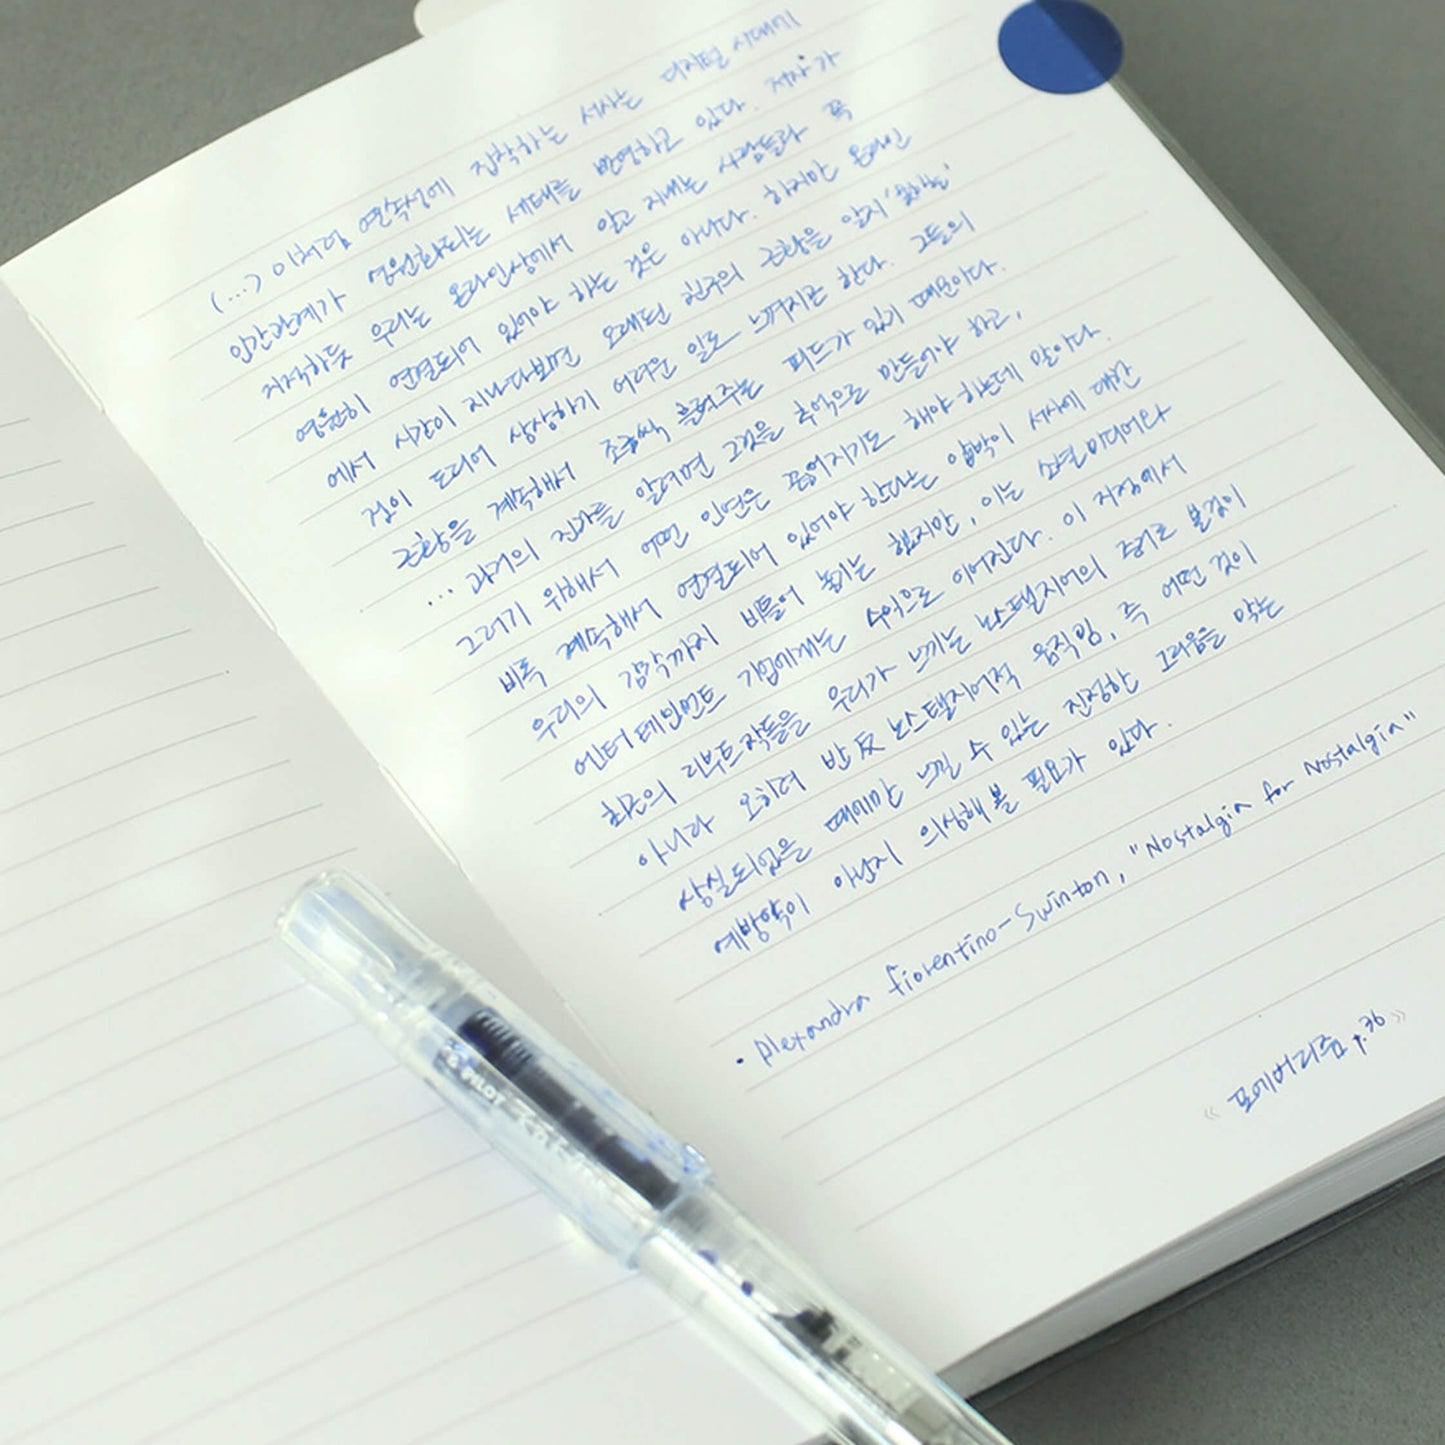 (...) 이처럼 연속성에 집착하는 서사는 디지털 시대에
인간관계가 영원화되는 세태를 반영하고 있다. 저자가
지적하듯 우리는 온라인상에서 알고 지내는 사람들과 꼭
영원히 연결되어 있어야 하는 것은 아니다. 하지만 온라인
에서 시간이 지나다보면 오래된 친구의 근황을 알지 '못하는'
것이 도리어 상상하기 어려운 일로 느껴지곤 한다. 그들의
근황을 계속해서 조금씩 흘려주는 피드가 있기 때문이다.
... 과거의 진가를 알려면 그것을 추억으로 만들어야 하고,
그러기 위해서 어떤 인연은 끊어지기도 해야 하는데 말이다.
비록 계속해서 연결되어 있어야 한다는 압박이 서사에 대한
우리의 감각까지 비틀어 놓기는 했지만, 이는 소셜미디어와
엔터테인먼트 기업에게는 수익으로 이어진다. 이 지점에서
최근의 리부트작들을 우리가 느끼는 노스텔지어의 증거로 볼것이
아니라 오히려 반反노스텔지어적 움직임, 즉 어떤 것이
상실되었을 때에만 느낄 수 있는 진정한 그리움을 막는
예방약이 아닌지 의심해 볼 필요가 있다.
• Alexandra Fiorentino-Swinton, "Nostalgia for Nostalgia"
《 포에버리즘 p.36 》
PILOT